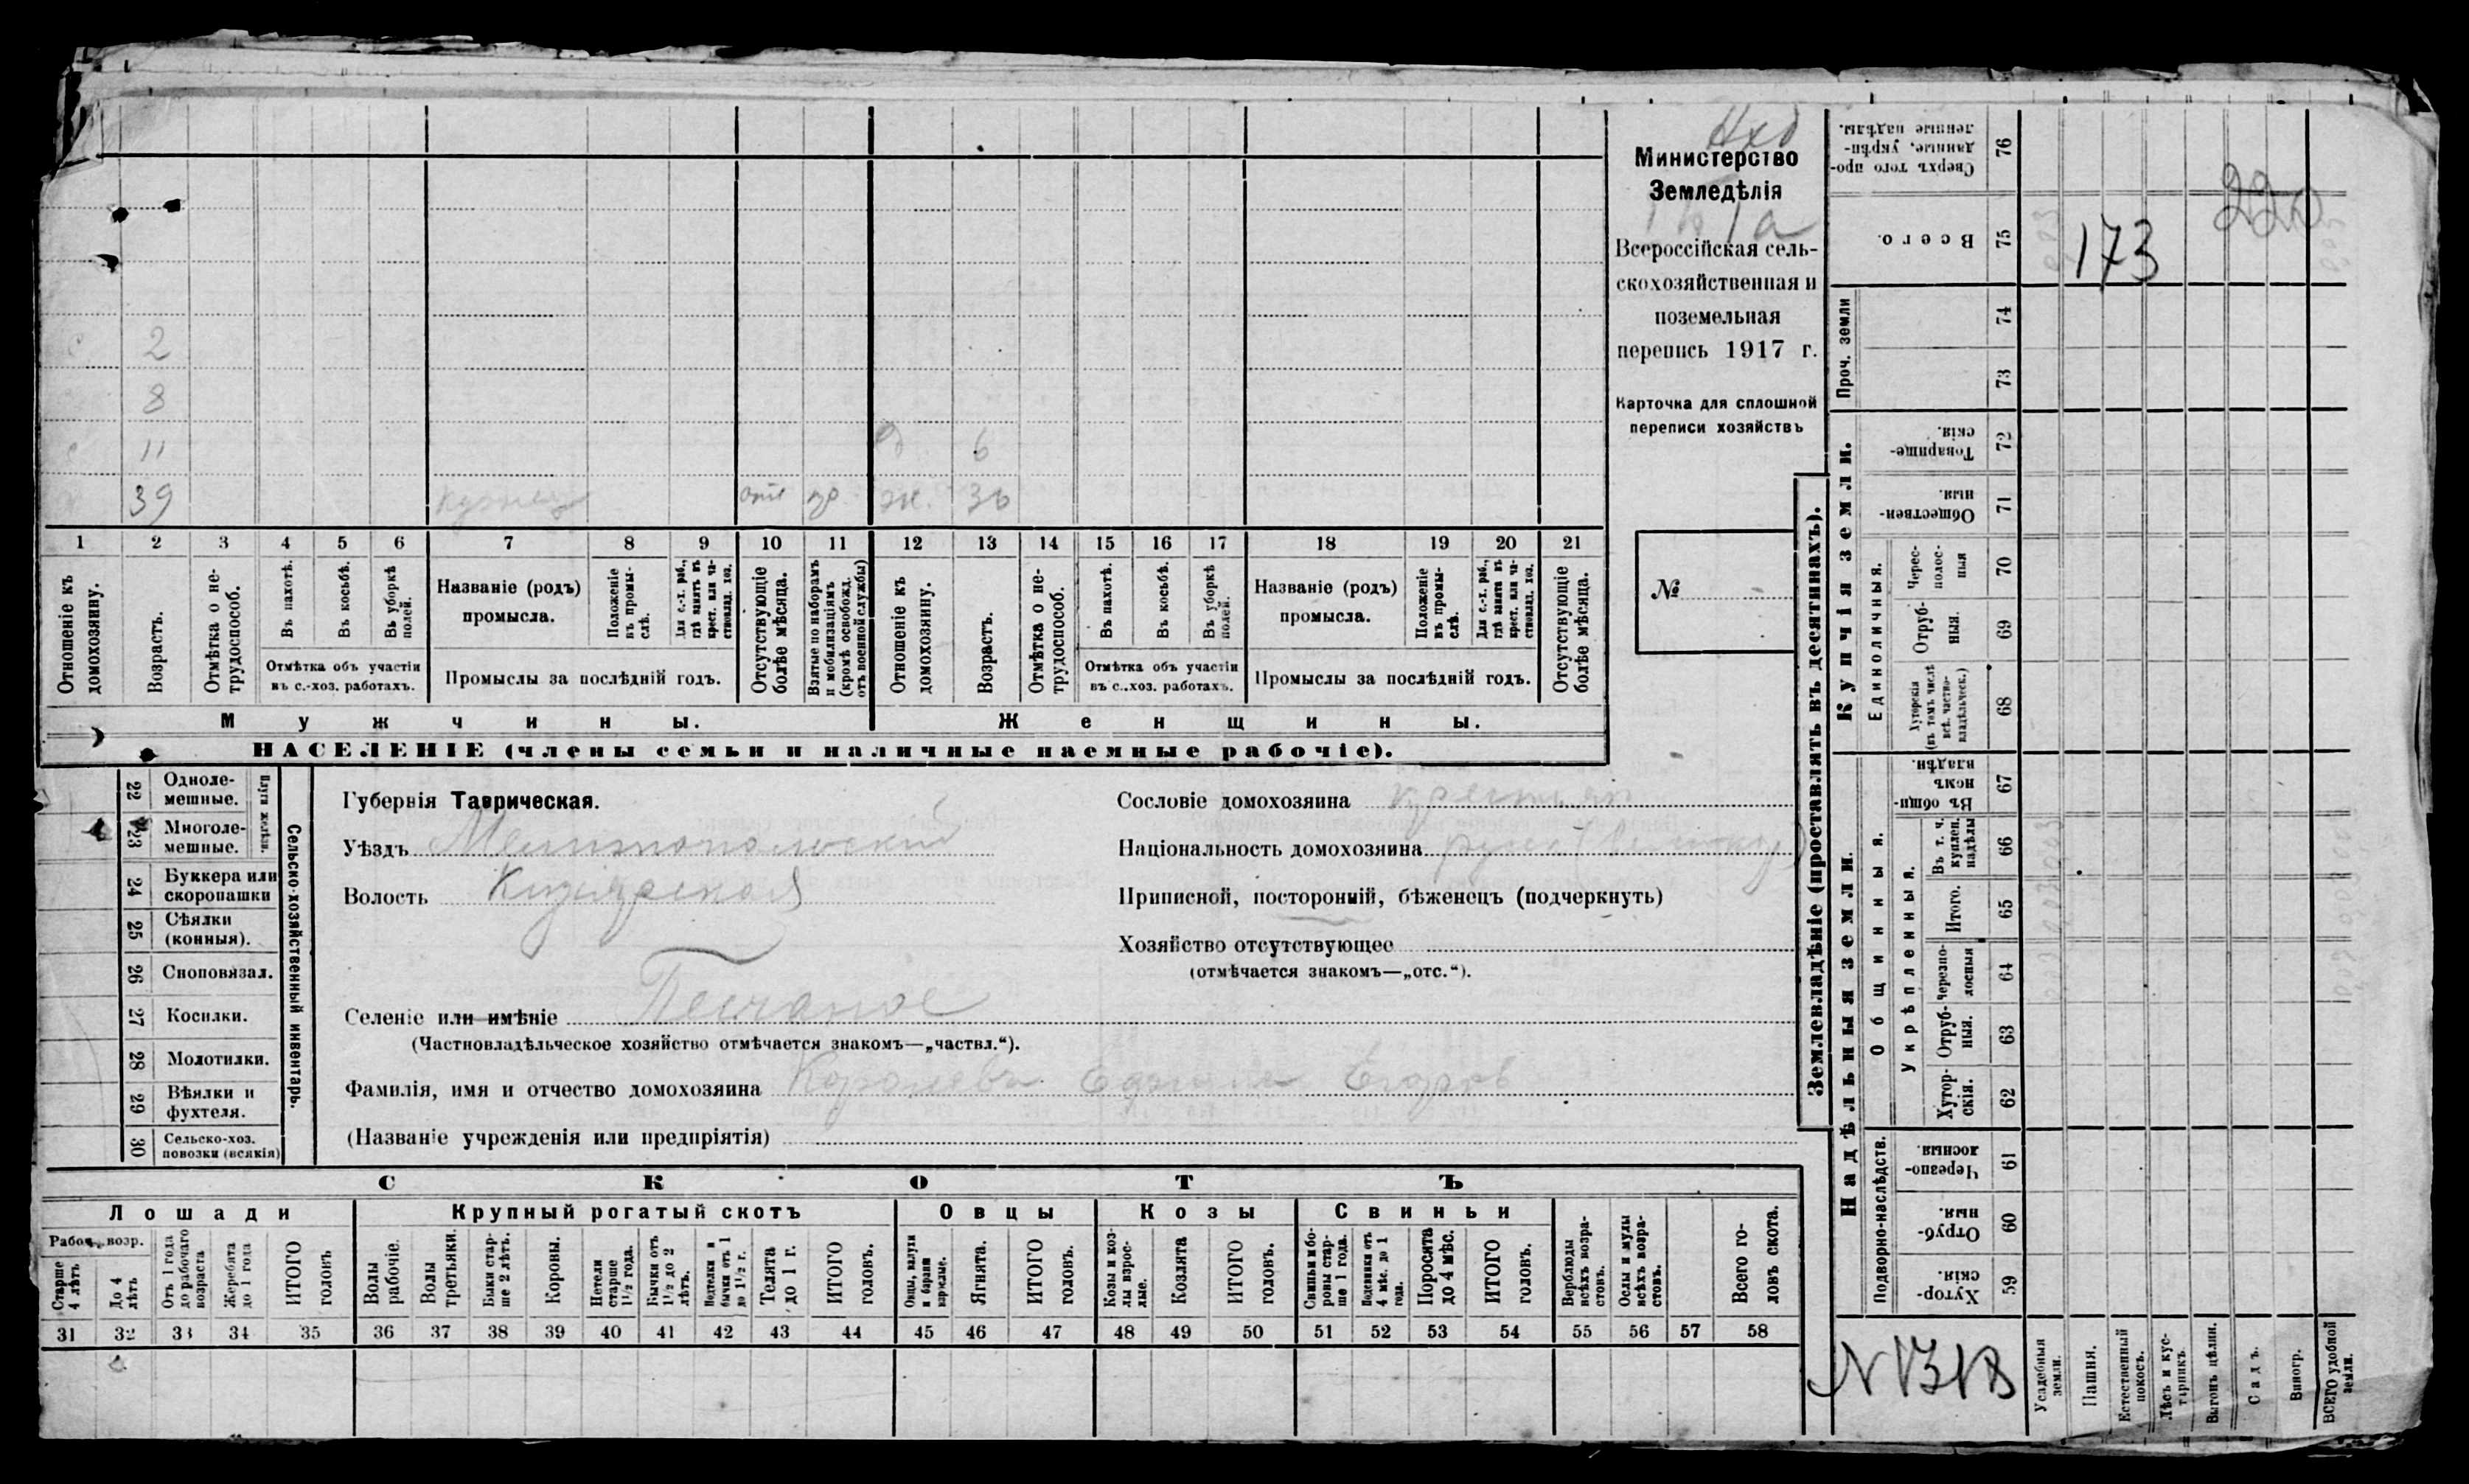 Министерство
Земледѣлія
Всероссійская сель-
скохозяйственная и
поземельная
перепись 1917 г.
Карточка для сплошной
переписи хозяйствъ
№
2
8
11
6
39 кузнец отс ж. 36
1 2 3 4 5 6 7 8 9 10 11 12 13 14 15 16 17 18 19 20 21
Отношеніе къ домохозяину.
Возрастъ.
Отмѣтка о не-трудоспособ.
Въ пахотѣ.
Въ косьбѣ.
Въ уборкѣ полей.
Отмѣтка объ участіи
въ с.-хоз. работахъ.
Названіе (родъ)
промысла.
Положеніе въ промы-слѣ.
Для с.-х. раб., гдѣ занятъ въ крест. или ча-ствовлад. хоз.
Промыслы за послѣдній годъ.
Отсутствующіе болѣе мѣсяца.
Взятые по наборамъ и мобилизаціямъ (кромѣ освобожд. отъ военной службы)
Отношеніе къ домохозяину.
Возрастъ.
Отмѣтка о не-трудоспособ.
Въ пахотѣ.
Въ косьбѣ.
Въ уборкѣ полей.
Отмѣтка объ участіи
въ с.-хоз. работахъ.
Названіе (родъ)
промысла.
Положеніе въ промы-слѣ.
Для с.-х. раб., гдѣ занятъ въ крест. или ча-ствовлад. хоз.
Промыслы за послѣдній годъ.
Отсутствующіе болѣе мѣсяца.
Мужчины. Женщины.
НАСЕЛЕНІЕ (члены семьи и наличные наемные рабочіе).
Сельско-хозяйственный инвентарь.
Плуги желѣзн.
22 Одноле-мешные.
23 Многоле-мешные.
24 Буккера или скоропашки
25 Сѣялки (конныя).
26 Сноповязал.
27 Косилки.
28 Молотилки.
29 Вѣялки и фухтеля.
30 Сельско-хоз. повозки (всякія)
Губернія Таврическая.
Уѣздъ Мелитопольский
Волость Кизиярская
Селеніе или имѣніе Песчаное
(Частновладѣльческое хозяйство отмѣчается знакомъ—„частвл.“).
Фамилія, имя и отчество домохозяина Королевъ Егоров
(Названіе учрежденія или предпріятія)
Сословіе домохозяина крестьян
Національность домохозяина русск (великор)
Приписной, посторонній, бѣженецъ (подчеркнуть)
Хозяйство отсутствующее
(отмѣчается знакомъ—„отс.“).
СКОТЪ
Лошади Крупный рогатый скотъ Овцы Козы Свиньи
Рабоч. возр.
Старше 4 лѣтъ
До 4 лѣтъ
Отъ 1 года до рабочаго возраста
Жеребята до 1 года
ИТОГО головъ
Волы рабочіе.
Волы третьяки.
Быки стар-ше 2 лѣтъ.
Коровы.
Нетели старше 1½ года.
Бычки отъ 1½ до 2 лѣтъ.
Подтелки и бычки отъ 1 до 1½ г.
Телята до 1 г.
ИТОГО головъ.
Овцы, валухи и бараны взрослые.
Ягнята.
ИТОГО головъ.
Козы и коз-лы взрос-лые.
Козлята
ИТОГО головъ.
Свиньи и бо-ровы стар-ше 1 года.
Подсвинки отъ 4 мѣс. до 1 года.
Поросята до 4 мѣс.
ИТОГО головъ.
Верблюды всѣхъ возра-стовъ.
Ослы и мулы всѣхъ возра-стовъ.
Всего го-ловъ скота.
31 32 33 34 35 36 37 38 39 40 41 42 43 44 45 46 47 48 49 50 51 52 53 54 55 56 57 58
Землевладѣніе (проставлять въ десятинахъ).
Надѣльныя земли.
Подворно-наслѣдств.
Хутор-скія. 59
Отруб-ныя. 60
Черезпо-лосныя. 61
Общинныя.
Укрѣпленныя.
Хутор-скія. 62
Отруб-ныя. 63
Черезпо-лосныя 64
Итого. 65
Въ т. ч. куплен. надѣлы 66
Въ общи-номъ владѣн. 67
Купчія земли.
Единоличныя.
Хуторскія (въ томъ числѣ всѣ частно-владѣльческ.) 68
Отруб-ныя. 69
Черес-полос-ныя 70
Обществен-ныя. 71
Товарище-скія. 72
Проч. земли
73
74
Всего. 75
Сверхъ того про-данные, укрѣп-ленные надѣлы. 76
173
220
Усадебныя земли.
Пашня.
Естественный покосъ.
Лѣсъ и кус-тарникъ.
Выгонъ цѣлин.
Садъ.
Виногр.
ВСЕГО удобной земли.